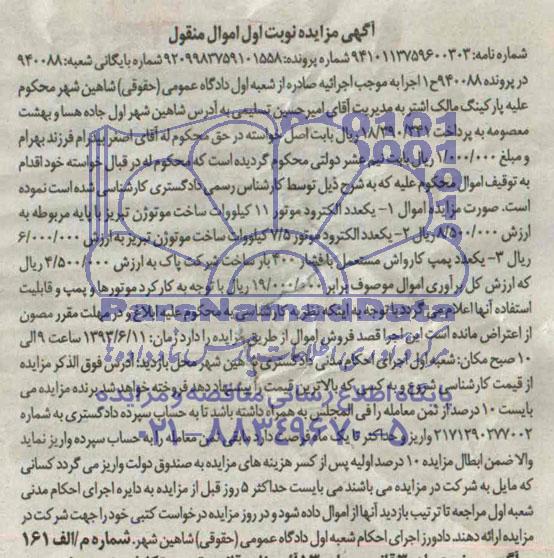 آگهی مزایده نوبت اول اموال منقول
شماره نامه: ۹۴۱۰۱۱۳۷۵۹۶۰۰۳۰۳ شماره پرونده: ۹۲۰۹۹۸۳۷۵۹۱۰۱۵۵۸ شماره بایگانی شعبه: ۹۴۰۰۸۸
در پرونده ۹۴۰۰۸۸ ح۱ اجرا به موجب اجرائیه صادره از شعبه اول دادگاه عمومی (حقوقی) شاهین شهر محکوم
علیه پارکینگ مالک اشتر به مدیریت آقای امیرحسین تسلیمی به آدرس شاهین شهر اول جاده هسا و بهشت
معصومه به پرداخت ۱۸/۳۹۰/۳۴۱ ریال بابت اصل خواسته در حق محکوم له آقای اصغر بهرام فرزند بهرام
و مبلغ ۱/۰۰۰/۰۰۰ ریال بابت نیم عشر دولتی محکوم گردیده است که محکوم له در قبال خواسته خود اقدام
به توقیف اموال محکوم علیه که به شرح ذیل توسط کارشناس رسمی دادگستری کارشناسی شده است نموده
است. صورت مزایده اموال ۱- یکعدد الکترود موتور ۱۱ کیلووات ساخت موتوژن تبریز با پایه مربوطه به
ارزش ۸/۵۰۰/۰۰۰ ریال ۲- یکعدد الکترود موتور ۷/۵ کیلووات ساخت موتوژن تبریز به ارزش ۶/۰۰۰/۰۰۰
ریال ۳- یکعدد پمپ کارواش مستعمل با فشار ۴۰۰ بار ساخت شرکت پاک به ارزش ۴/۵۰۰/۰۰۰ ریال
که ارزش کل برآوری اموال موصوف برابر ۱۹/۰۰۰/۰۰۰ ریال با توجه به کارکرد موتورها و پمپ و قابلیت
استفاده آنها اعلام می گردد با توجه به اینکه نظریه کارشناسی به محکوم علیه ابلاغ و در مهلت مقرر مصون
از اعتراض مانده است این اجرا قصد فروش اموال از طریق مزایده را دارد زمان: ۱۳۹۴/۶/۱۱ ساعت ۹ الی
۱۰ صبح مکان: شعبه اول اجرای احکام مدنی دادگستری شاهین شهر محل بازدید: آدرس فوق الذکر مزایده
از قیمت کارشناسی شروع و به کسی که بالاترین قیمت را پیشنهاد دهد فروخته خواهد شد برنده مزایده می
بایست ۱۰ درصد از ثمن معامله را فی المجلس به همراه داشته باشد تا به حساب سپرده دادگستری به شماره
۲۱۷۱۳۹۰۲۷۷۰۰۲ واریز و حداکثر تا یک ماه فرصت دارد مابقی ثمن معامله را به حساب سپرده واریز نماید
والا ضمن ابطال مزایده ۱۰ درصد اولیه پس از کسر هزینه های مزایده به صندوق دولت واریز می گردد کسانی
که مایل به شرکت در مزایده می باشند می بایست حداکثر ۵ روز قبل از مزایده به دایره اجرای احکام مدنی
شعبه اول مراجعه تا ترتیب بازدید آنها از اموال داده شود و در روز مزایده درخواست کتبی خود را جهت شرکت در
مزایده ارائه دهند. دادورز اجرای احکام شعبه اول دادگاه عمومی (حقوقی) شاهین شهر. شماره م/الف ۱۶۱
ParsNamadData
پایگاه اطلاع رسانی مناقصه و مزایده
۰۲۱-۸۸۳۴۹۶۷۰-۵